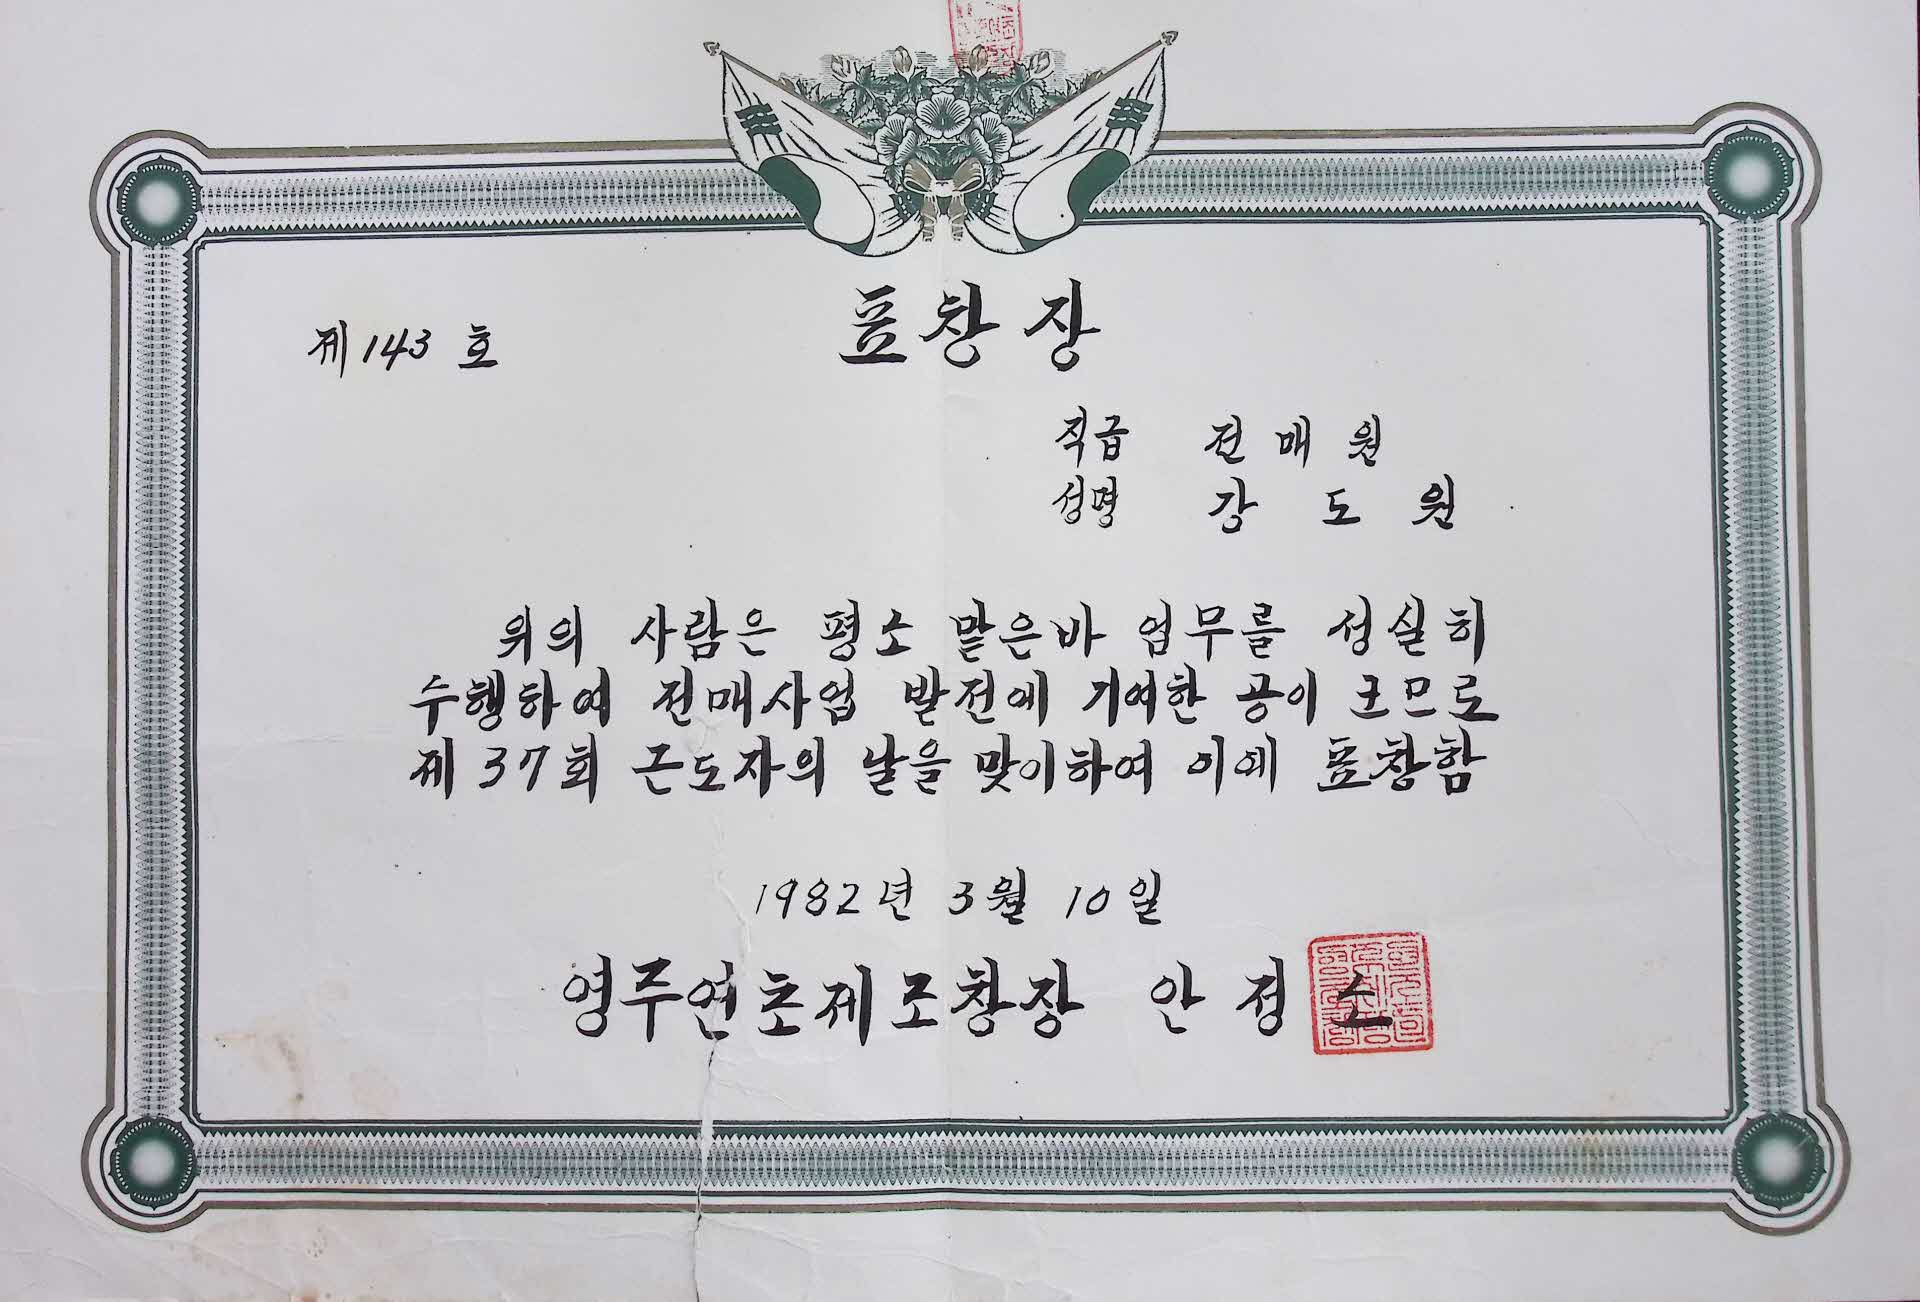 제 143 호
표창장
직급 전매원
성명 강도원
위의 사람은 평소 맡은바 업무를 성실히
수행하여 전매사업 발전에 기여한 공이 크므로
제 37회 근로자의 날을 맞이하여 이에 표창함
1982년 3월 10일
영주연초제조창장 안정소